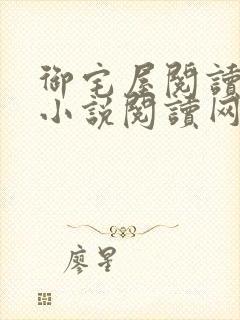 御宅屋閱讀
小説閱讀网
廖星